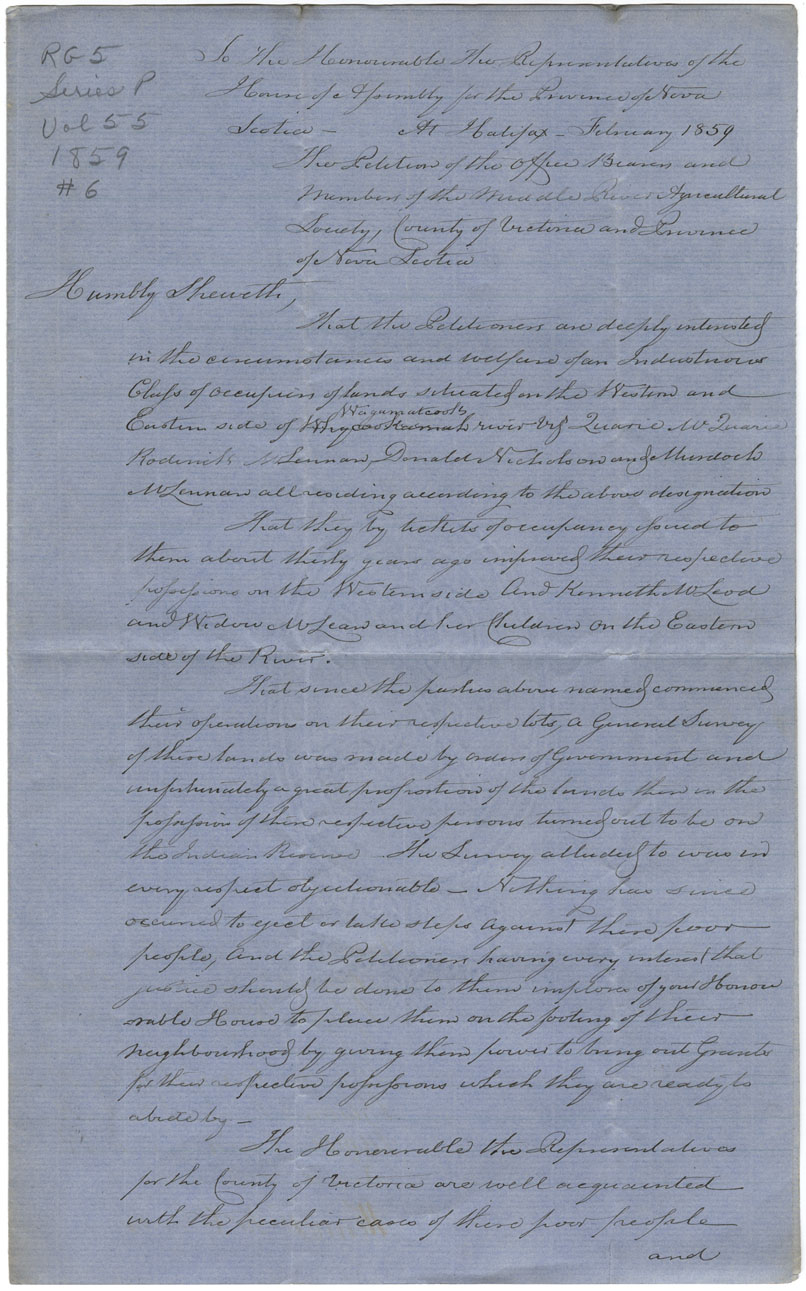 RG 5
Series P
Vol 55
1859
# 6
To The Honourable The Representatives of the
House of Assembly for the Province of Nova
Scotia — At Halifax — February 1859
The Petition of the Office Bearers and
Members of the Middle River Agricultural
Society, County of Victoria and Province
of Nova Scotia
Humbly Sheweth,
That the Petitioners are deeply interested
in the circumstances and welfare of an Industrious
Class of occupiers of lands situated on the Western and
Wagamatcook
Eastern side of river Viz Quarie McQuarie
Roderick McLennan, Donald Nicholson and Murdoch
McLennan all residing according to the above designation
That they by tickets of occupancy issued to
them about thirty years ago improved their respective
possessions on the Western side And Kenneth McLeod
and Widow McLean and her Children on the Eastern
side of the River.
That since the parties above named commenced
their operations on their respective lots, a General Survey
of these lands was made by orders of Government and
unfortunately a great proportion of the lands then in the
possession of these respective persons turned out to be on
the Indian Reserve The Survey alluded to was in
every respect objectionable — Nothing has since
occured to eject or take steps against these poor
people, and the Petitioners having every interest that
justice should be done to them implore of your Honou
rable House to place them on the footing of their
neighbourhood by giving them power to bring out Grants
for their respective possessions which they are ready to
abide by —
The Honourable the Representatives
for the County of Victoria are well acquainted
with the peculiar cases of these poor people
and